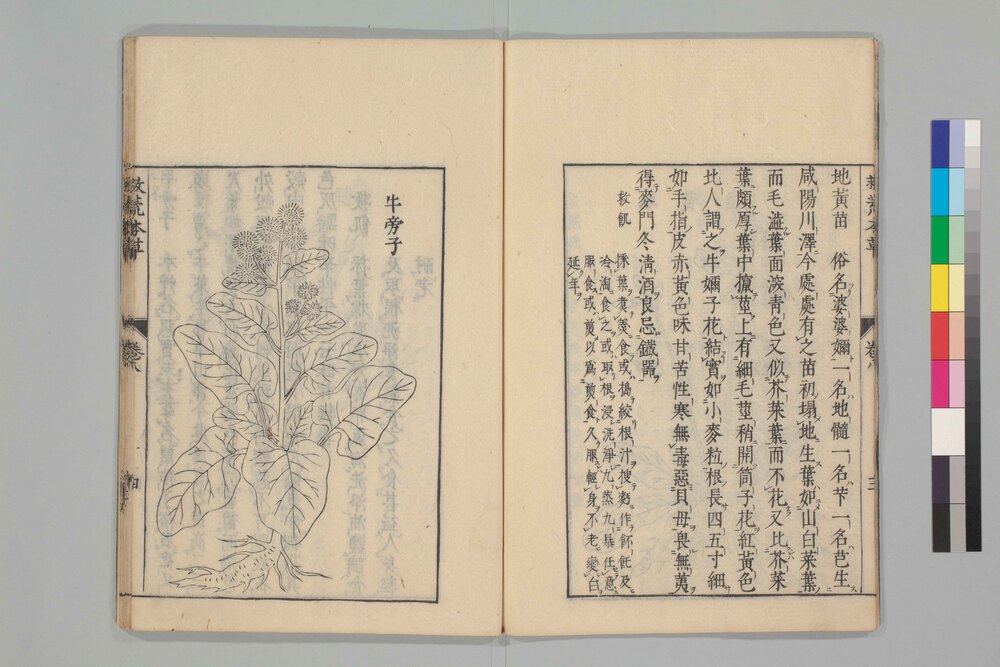 地黃苗 俗名婆婆嬭一名地髓一名芐一名芑生
咸陽川澤今處處有之苗初塌地生葉如山白菜葉
而毛澁葉面深青色又似芥菜葉而不花又比芥菜
葉頗厚葉中攛莖上有細毛莖稍開筒子花紅黃色
北人謂之牛嬭子花結實如小麥粒根長四五寸細
如手指皮赤黃色味甘苦性寒無毒惡貝母畏蕪荑
得麥門冬淸酒良忌鐵器
救飢
採葉煮羹食或搗絞根汁搜麪作飥及
冷淘食之或取根浸洗淨九蒸九暴任意
服食或煎以爲煎食久服輕身不老變白
延年
卷八
三
牛旁子
救荒本草
卷八
四